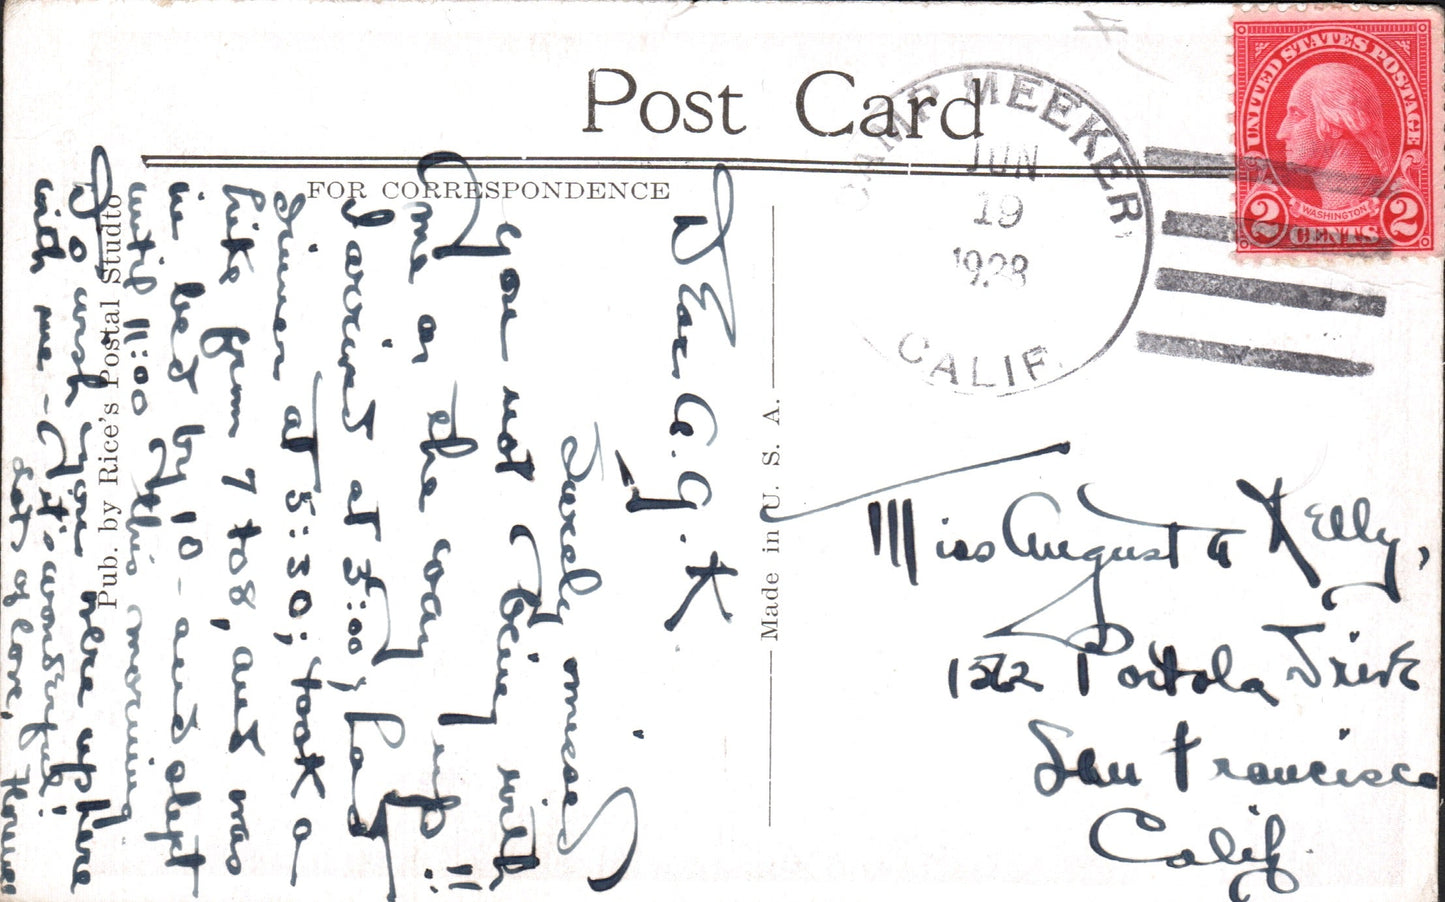 Post Card
FOR CORRESPONDENCE
CAMP MEEKER
JUN
19
1928
CALIF.
UNITED STATES POSTAGE
WASHINGTON
2 CENTS 2
Miss Augusta Kelly,
1562 Portola Drive
San Francisco
Calif.
Made in U. S. A.
Pub. by Rice's Postal Studio
Dear A. G. K
Surely missed
you not being with
me on the way up!!
I arrived at 3:00; had
dinner at 5:30; took a
hike from 7 to 8, and was
in bed by 10 - and slept
until 11:00 this morning
Do wish you were up here
with me - It's wonderful!
Lots of love,